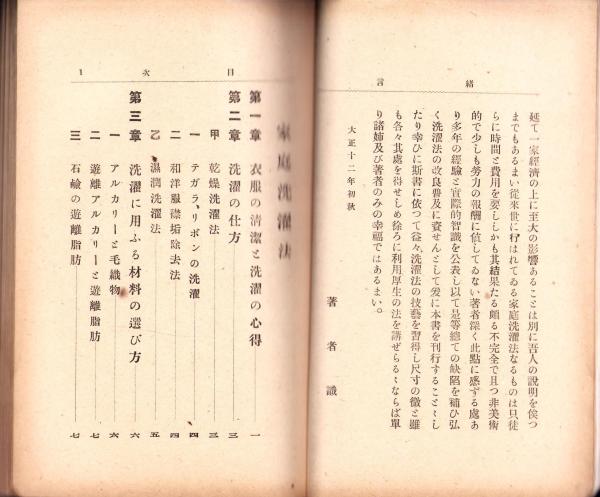 緒言
延て一家經濟の上に至大の影響あることは別に吾人の説明を俟つ
までもあるまい從來世に行はれてゐる家庭洗濯法なるものは只徒
らに時間と費用を要ししかも其結果たる頗る不完全で且つ非美術
的で少しも勞力の報酬に値してゐない著者深く此點に感ずる處あ
り多年の經驗と實際的智識を公表し以て是等總ての缺陷を補ひ弘
く洗濯法の改良普及に資せんとして爰に本書を刊行することゝし
たり幸ひに斯書に依つて益々洗濯法の技藝を習得し尺寸の微と雖
も各々其處を得せしめ徐ろに利用厚生の法を講ぜらるゝならば單
り諸姉及び著者のみの幸福ではあるまい。
大正十二年初秋
著者識
目次
1
家庭洗濯法
第一章 衣服の清潔と洗濯の心得 一
第二章 洗濯の仕方 三
甲 乾燥洗濯法 三
一 テガラ、リボンの洗濯 四
二 和洋服襟垢除去法 四
乙 濕潤洗濯法 五
第三章 洗濯に用ふる材料の選び方 六
一 アルカリーと毛織物 六
二 遊離アルカリーと遊離脂肪 七
三 石鹼の遊離脂肪 七